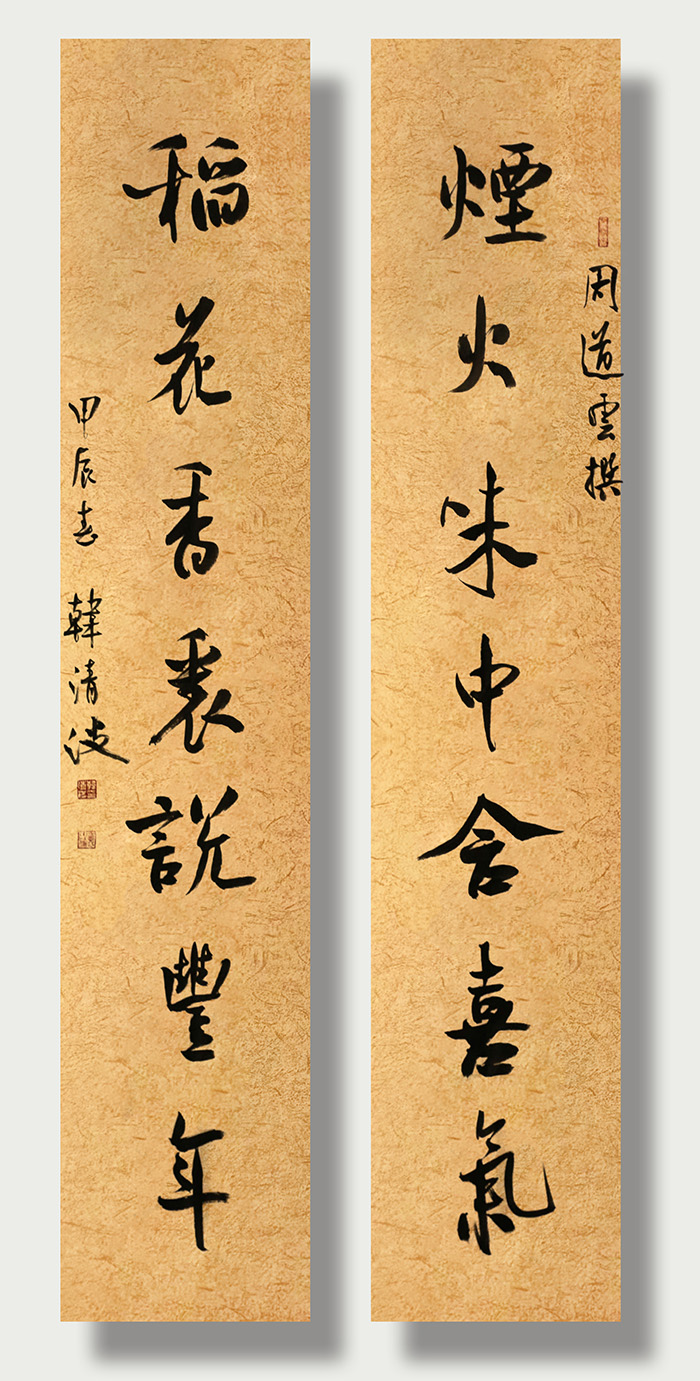 煙火味中含喜氣
周道雲撰
稻花香裏説豐年
甲辰春 韓清波